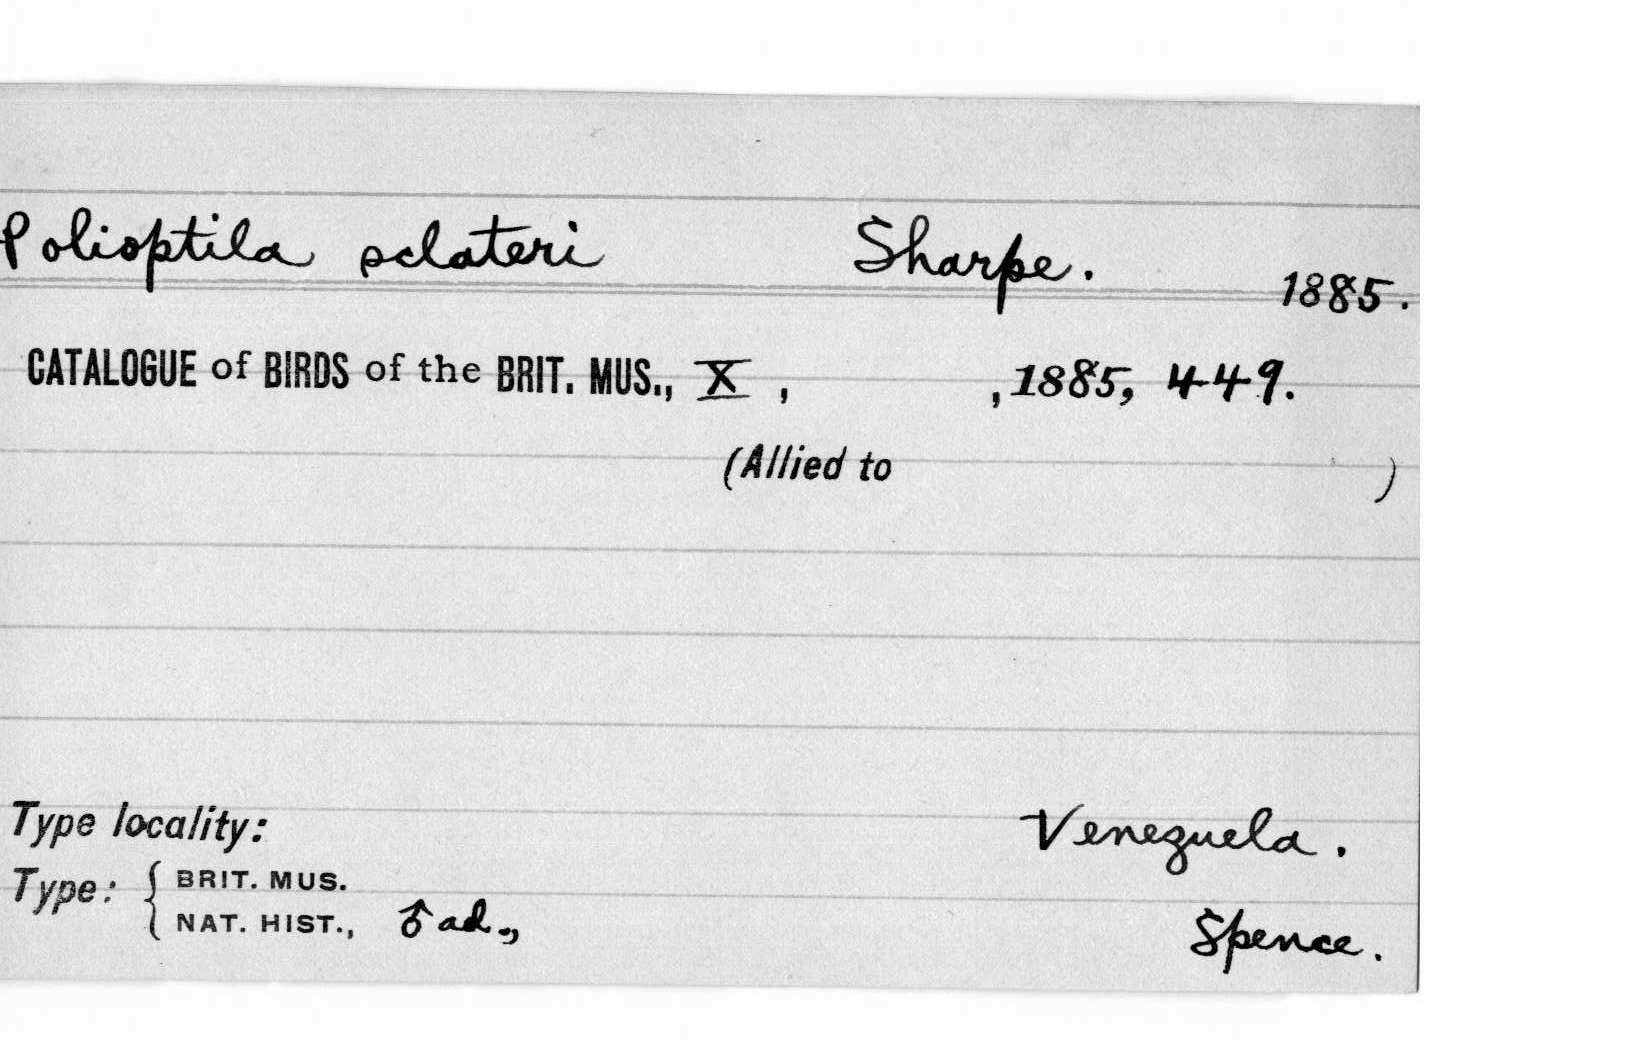 Polioptila sclateri Sharpe. 1885.
CATALOGUE of BIRDS of the BRIT. MUS., X, , 1885, 449.
(Allied to )
Type locality: Venezuela.
Type: { BRIT. MUS.
NAT. HIST., ♂ ad., Spence.